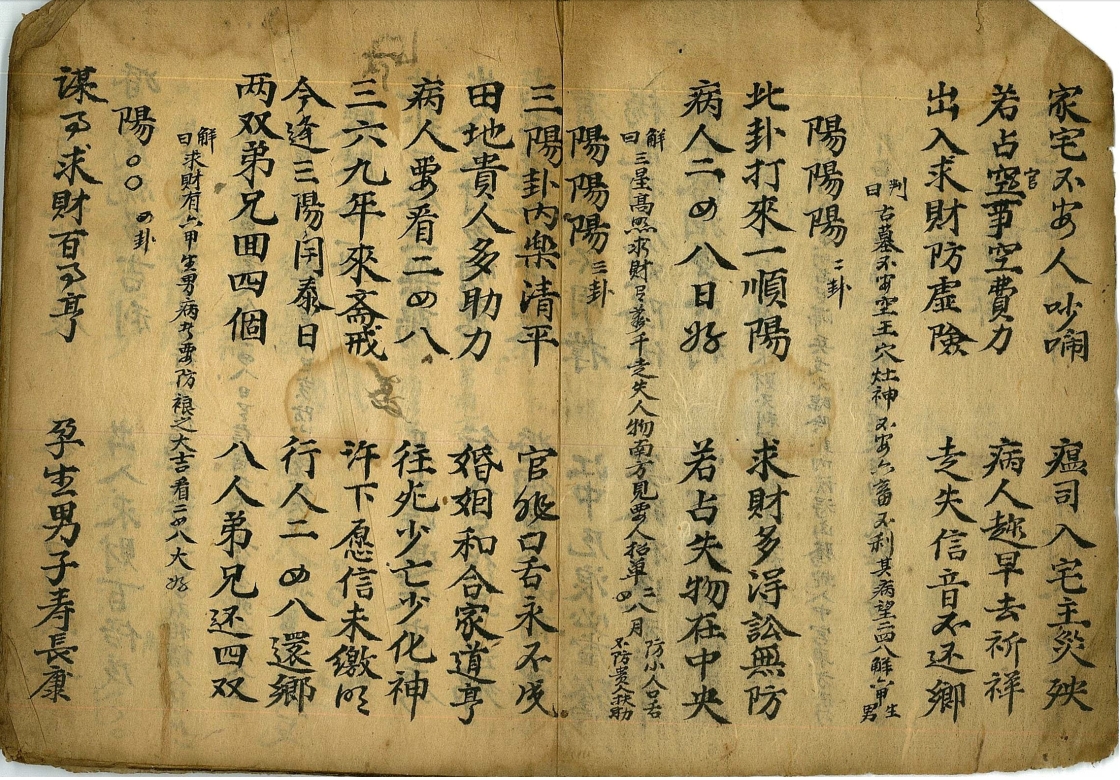 家宅不安人吵鬧 瘟司入宅主災殃
若占官事空費力 病人趁早去祈祥
出入求財防虛險 走失信音不还鄉
判曰 古墓不安空王穴灶神不安六畜不利其病望二四八解六甲生男
陽陽陽 二卦
此卦打來一順陽 求財多淂訟無防
病人二四八日好 若占失物在中央
解曰 三星髙照求財 千走失人物南方見要人招单二四八月防小人口舌不防贵人扶助
陽陽陽 三卦
三陽卦内樂清平 官非口舌永不成
田地貴人多助力 婚姻和合家道亨
病人要看二四八 往死少亡少化神
三六九年來斋戒 许下愿信未缴明
今逢三陽開泰日 行人二四八還鄉
两双弟兄 四個 八人弟兄还四双
解曰 求財有六甲生男病者要防 之大吉看二四八大好
陽〇〇 四卦
谋事求財百事亨 孕生男子寿長康